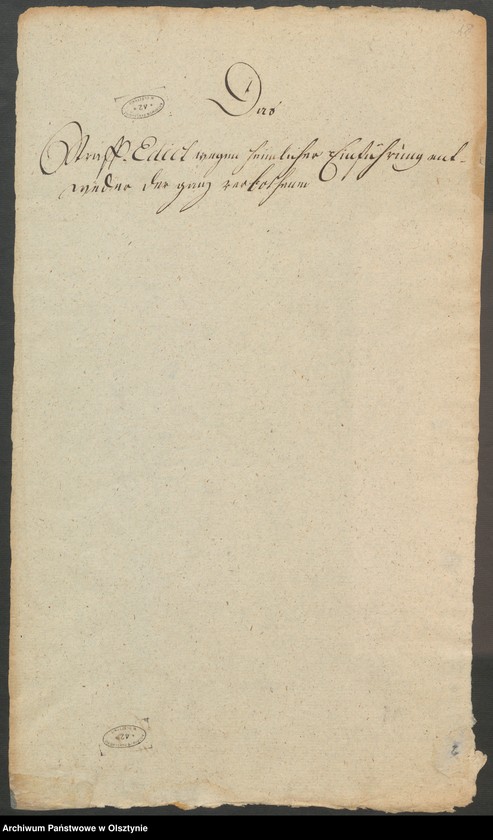 Das
Straff-Edict wegen heimlicher Einführung ent-
weder der ganz verbothenen
2
Archiwum Państwowe w Olsztynie